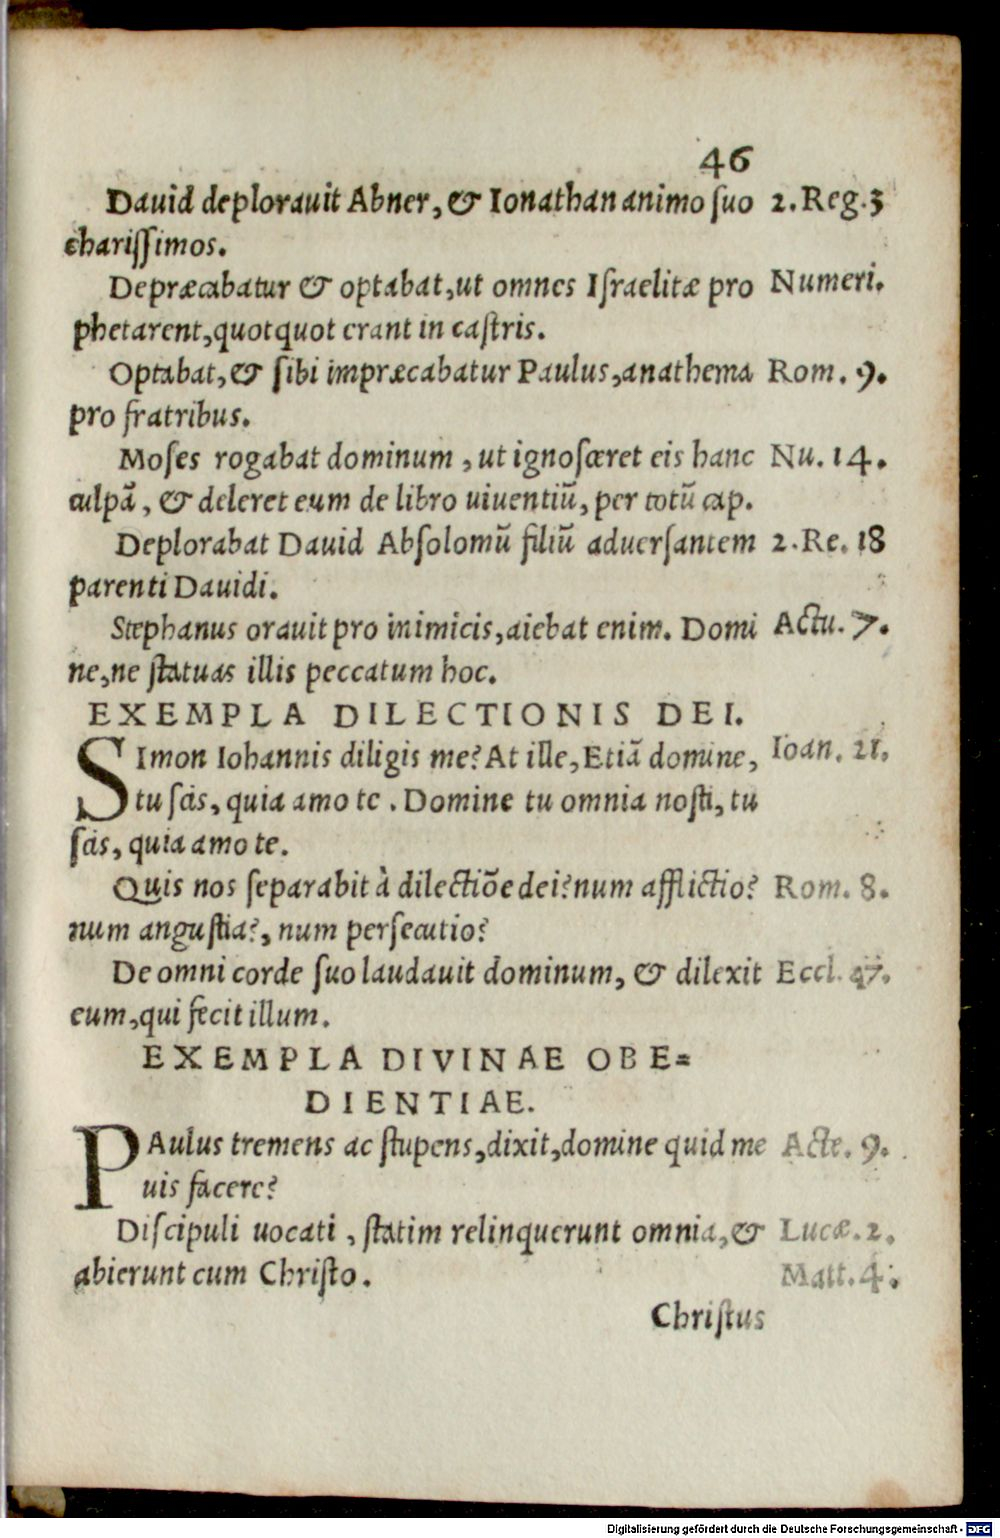 46
Dauid deplorauit Abner, & Ionathan animo ſuo 2. Reg. 3
chariſſimos.
Depræcabatur & optabat, ut omnes Iſraelitæ pro Numeri.
phetarent, quotquot erant in caſtris.
Optabat, & ſibi impræcabatur Paulus, anathema Rom. 9.
pro fratribus.
Moſes rogabat dominum, ut ignoſceret eis hanc Nu. 14.
culpā, & deleret eum de libro uiuentiū, per totū cap.
Deplorabat Dauid Abſolomū filiū aduerſantem 2. Re. 18
parenti Dauidi.
Stephanus orauit pro inimicis, aiebat enim. Domi Actu. 7.
ne, ne ſtatuas illis peccatum hoc.
EXEMPLA DILECTIONIS DEI.
SImon Iohannis diligis me? At ille, Etiā domine, Ioan. 21.
tu ſcis, quia amo te. Domine tu omnia noſti, tu
ſcis, quia amo te.
Quis nos ſeparabit à dilectiōe dei? num afflictio? Rom. 8.
num anguſtia?, num perſecutio?
De omni corde ſuo laudauit dominum, & dilexit Eccl. 47.
eum, qui fecit illum.
EXEMPLA DIVINAE OBE=
DIENTIAE.
PAulus tremens ac ſtupens, dixit, domine quid me Acte. 9.
uis facere?
Diſcipuli uocati, ſtatim relinquerunt omnia, & Lucæ. 2.
abierunt cum Chriſto. Matt. 4.
Chriſtus
Digitalisierung gefördert durch die Deutsche Forschungsgemeinschaft - DFG